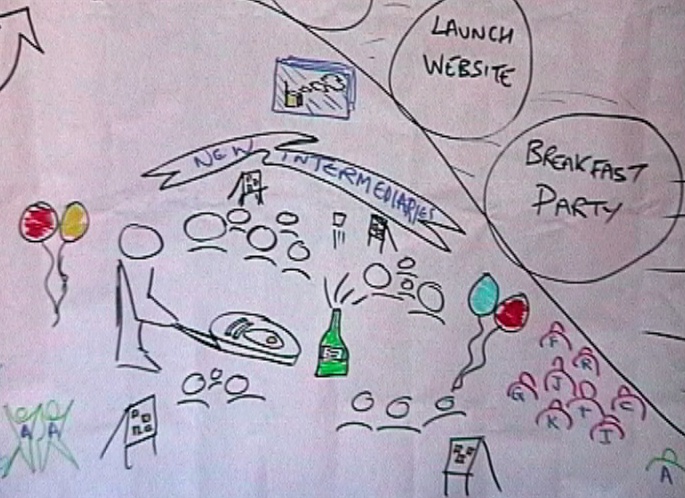 LAUNCH
WEBSITE
BREAKFAST
PARTY
NEW INTERMEDIARIES
F
R
G
J
C
K
I
A
A
A